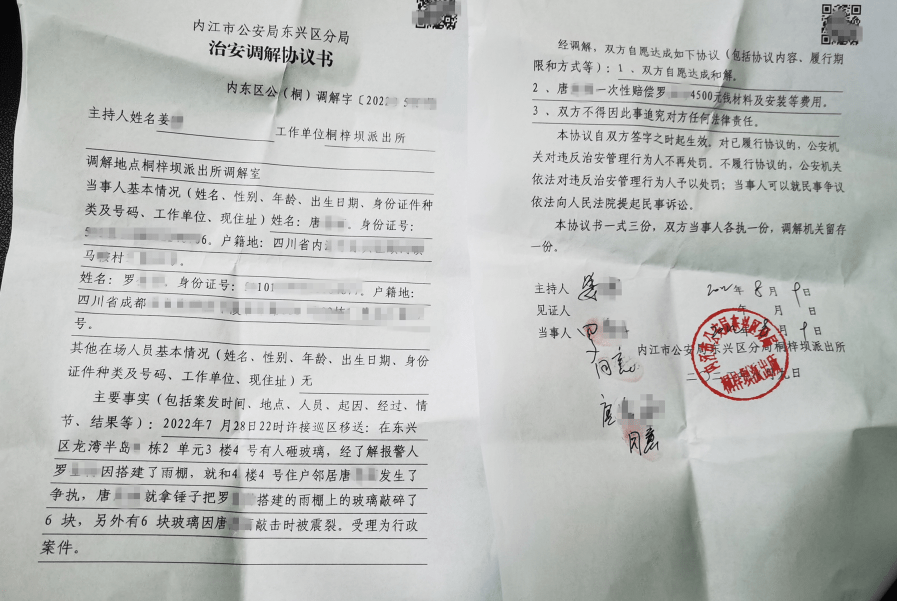 内江市公安局东兴区分局
治安调解协议书
内东区公（桐）调解字〔202
主持人姓名姜 工作单位桐梓坝派出所
调解地点桐梓坝派出所调解室
当事人基本情况（姓名、性别、年龄、出生日期、身份证件种
类及号码、工作单位、现住址）姓名：唐 。身份证号：
6。户籍地：四川省内
马 村
姓名：罗 。身份证号： 101 。户籍地：
四川省成都
号。
其他在场人员基本情况（姓名、性别、年龄、出生日期、身份
证件种类及号码、工作单位、现住址）无
主要事实（包括案发时间、地点、人员、起因、经过、情
节、结果等）：2022年7月28日22时许接巡区移送：在东兴
区龙湾半岛 栋2单元3楼4号有人砸玻璃，经了解报警人
罗 因搭建了雨棚，就和4楼4号住户邻居唐 发生了
争执，唐 就拿锤子把罗 搭建的雨棚上的玻璃敲碎了
6块，另外有6块玻璃因唐 敲击时被震裂。受理为行政
案件。
经调解，双方自愿达成如下协议（包括协议内容、履行期
限和方式等）：1、双方自愿达成和解。
2、唐 一次性赔偿罗 4500元钱材料及安装等费用。
3、双方不得因此事追究对方任何法律责任。
本协议自双方签字之时起生效。对已履行协议的，公安机
关对违反治安管理行为人不再处罚。不履行协议的，公安机关
依法对违反治安管理行为人予以处罚；当事人可以就民事争议
依法向人民法院提起民事诉讼。
本协议书一式三份，双方当事人各执一份，调解机关留存
一份。
主持人 姜 2022年8月9日
见证人 年 月 日
当事人 罗 年8月9日
同意
内江市公安局东兴区分局桐梓坝派出所
二〇二 九日
唐
同意